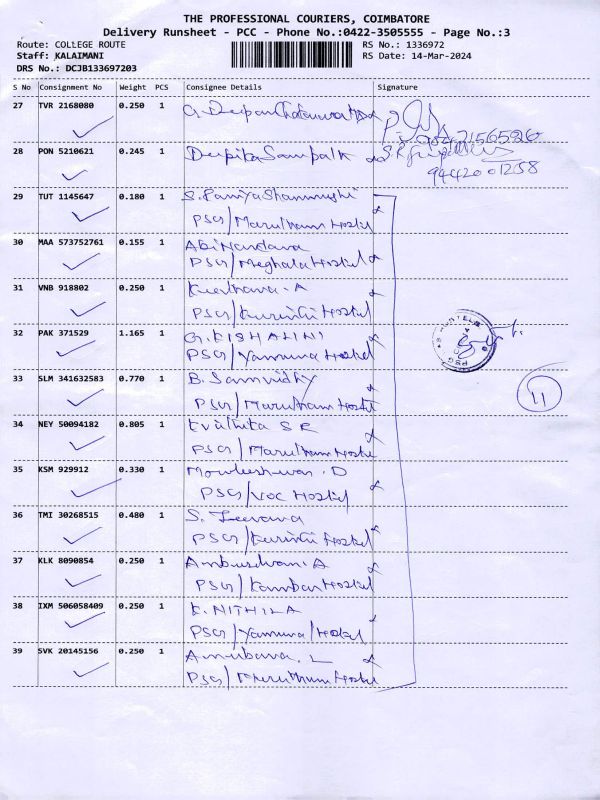 THE PROFESSIONAL COURIERS, COIMBATORE
Delivery Runsheet - PCC - Phone No.:0422-3505555 - Page No.:3
Route: COLLEGE ROUTE
RS No.: 1336972
Staff: KALAIMANI
RS Date: 14-Mar-2024
DRS No.: DCJB133697203
S No Consignment No Weight PCS Consignee Details Signature
27 TVR 2168080 0.250 1
28 PON 5210621 0.245 1 Deepika Sampath
94420 01258
29 TUT 1145647 0.180 1 S. Ramya Shanmughi
PSG/Marutham Hostel
30 MAA 573752761 0.155 1 Abi Nandana
PSG/Meghala Hostel
31 VNB 918802 0.250 1 Keerthana - A
PSG/Kurinji Hostel
32 PAK 371529 1.165 1 G. KISHALINI
PSG/Yamuna Hostel
33 SLM 341632583 0.770 1 B. Samvidhy
PSG/Marutham Hostel
34 NEY 50094182 0.805 1 S R
PSG/Marutham Hostel
35 KSM 929912 0.330 1 Mowleeshwar . D
PSG/VOC Hostel
36 TMI 30268515 0.480 1 S.
PSG/Kurinji Hostel
37 KLK 8090854 0.250 1 Anbuselvam . A
PSG/Kamban Hostel
38 IXM 506058409 0.250 1 K. NITHILA
PSG/Yamuna/Hostel
39 SVK 20145156 0.250 1 Anubava . L
PSG/Marutham Hostel
11